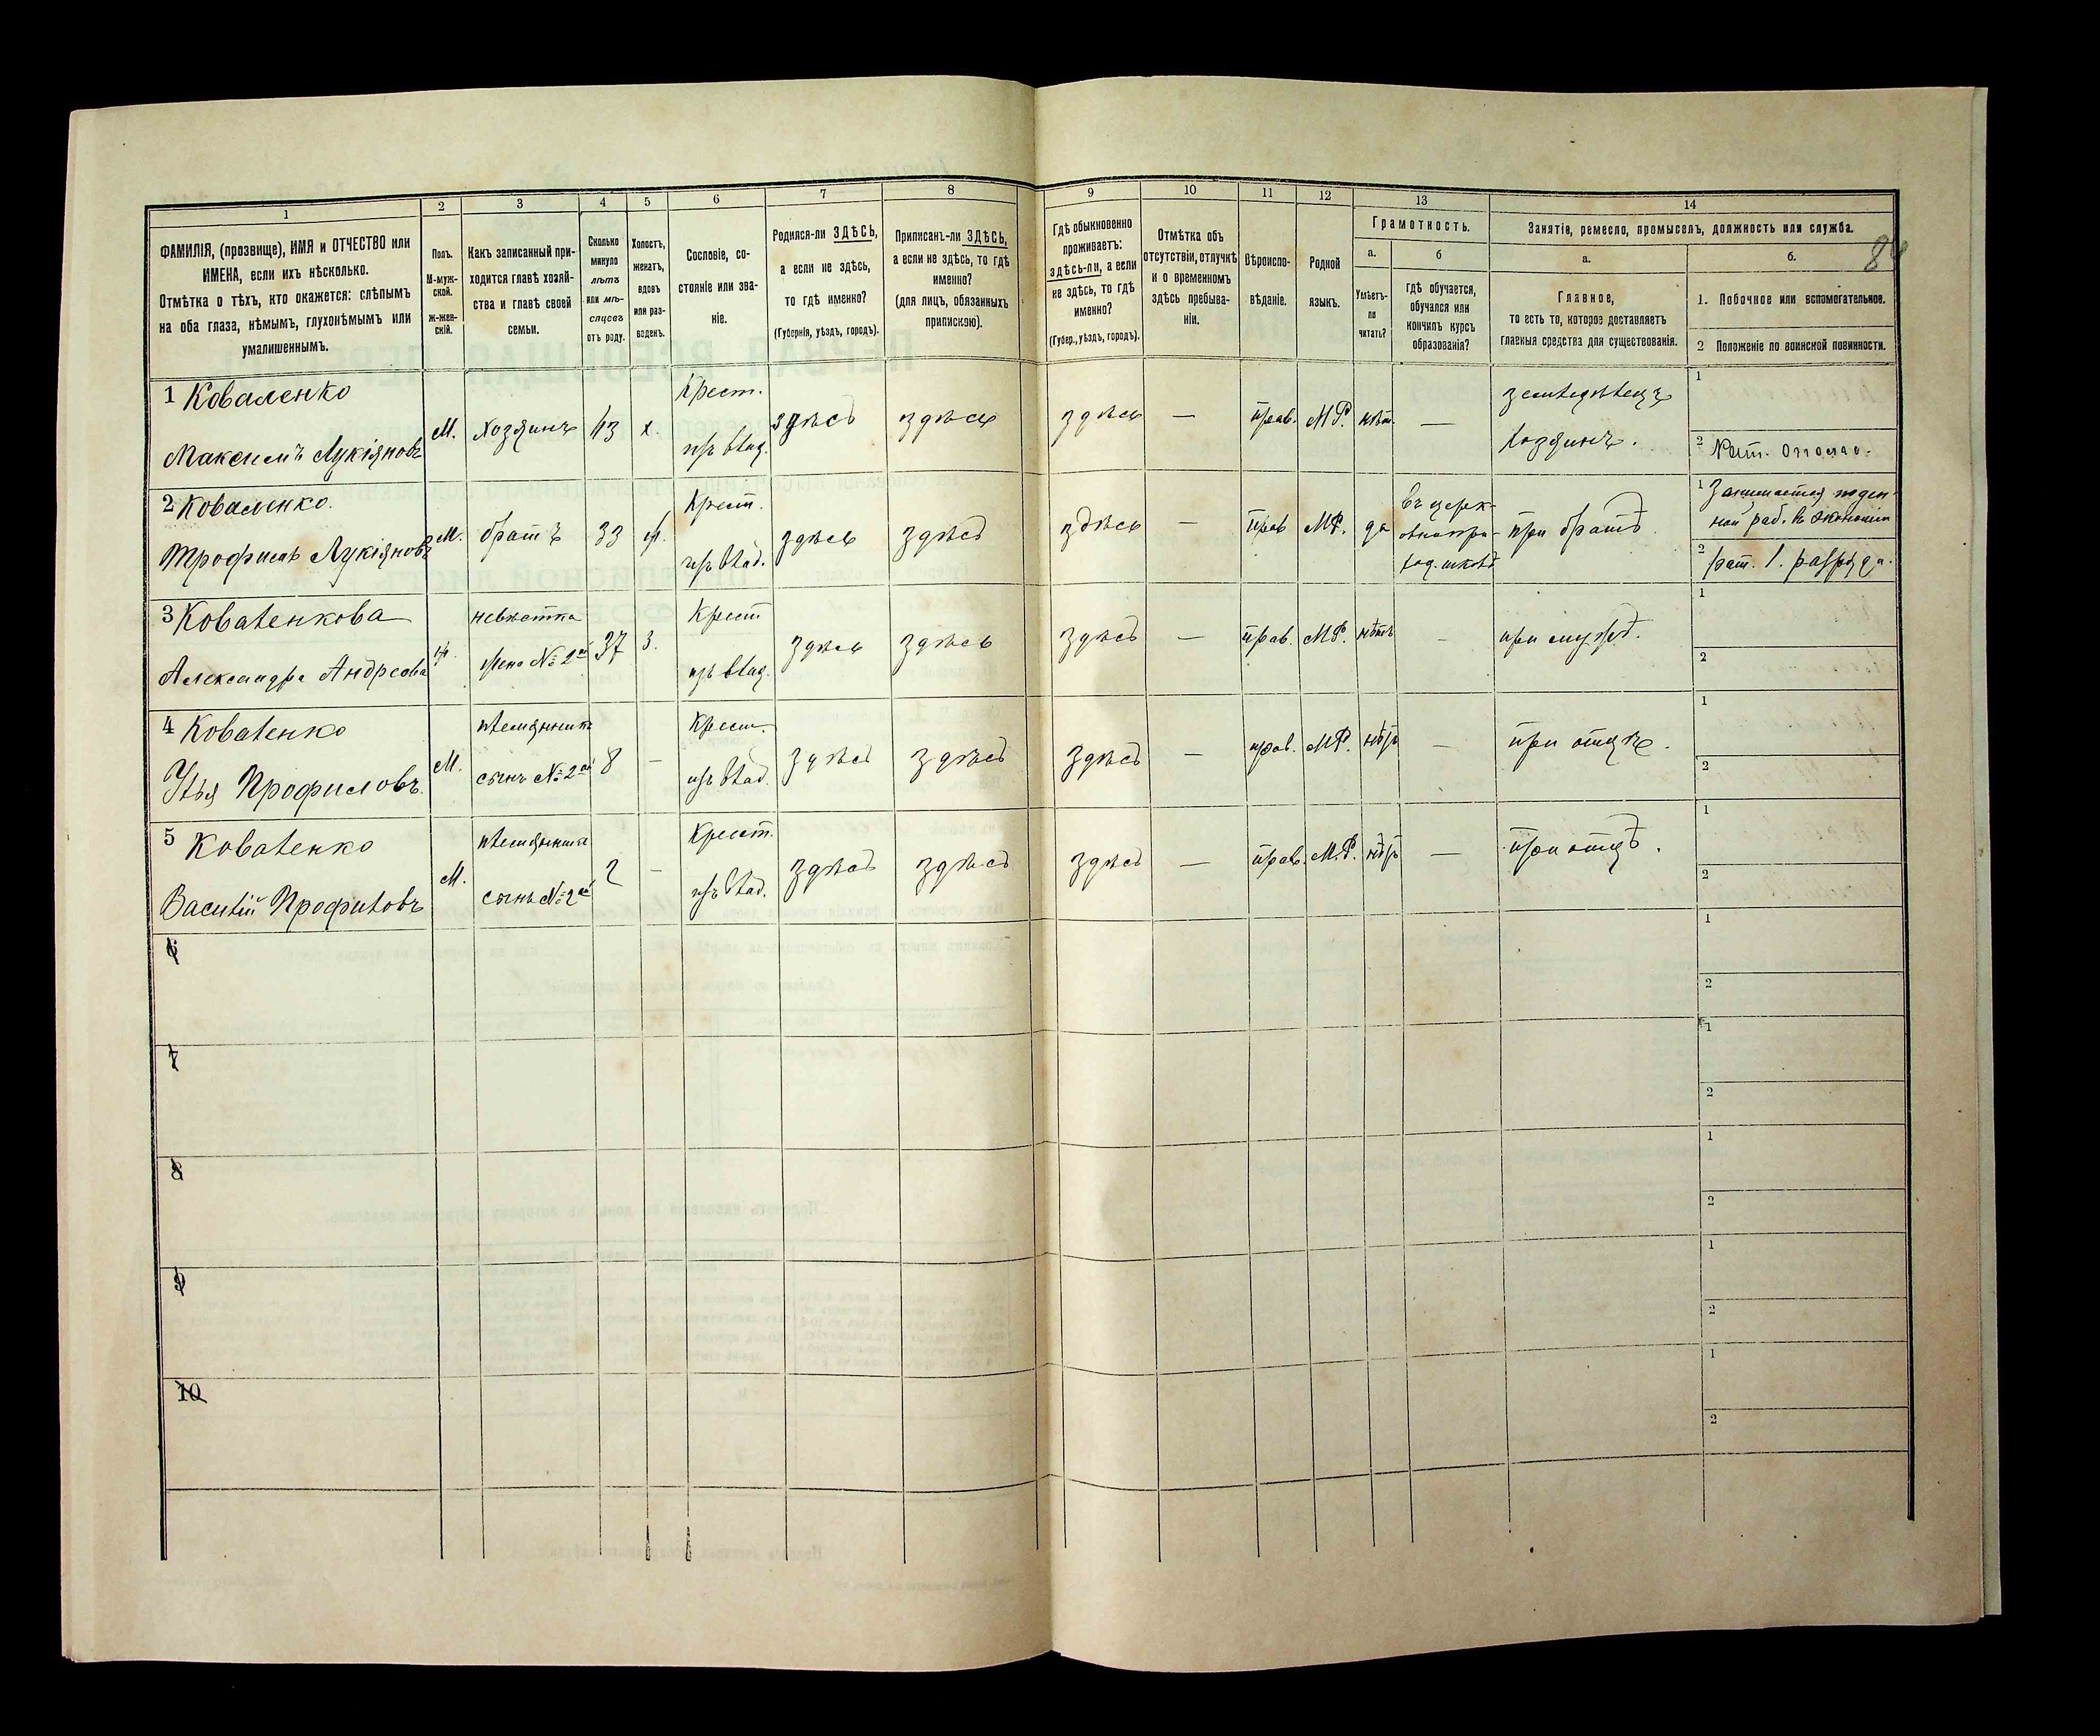 1
2
3
4
5
6
7
8
9
10
11
12
13
14
ФАМИЛІЯ, (прозвище), ИМЯ и ОТЧЕСТВО или
ИМЕНА, если ихъ нѣсколько.
Отмѣтка о тѣхъ, кто окажется: слѣпымъ
на оба глаза, нѣмымъ, глухонѣмымъ или
умалишеннымъ.
Полъ.
М-муж-
ской.
Ж-жен-
скій.
Какъ записанный при-
ходится главѣ хозяй-
ства и главѣ своей
семьи.
Сколько
минуло
лѣтъ
или мѣ-
сяцевъ
отъ роду.
Холостъ,
женатъ,
вдовъ
или раз-
веденъ.
Сословіе, со-
стояніе или зва-
ніе.
Родился-ли ЗДѢСЬ,
а если не здѣсь,
то гдѣ именно?
(Губернія, уѣздъ, городъ).
Приписанъ-ли ЗДѢСЬ,
а если не здѣсь, то гдѣ
именно?
(для лицъ, обязанныхъ
припискою).
Гдѣ обыкновенно
проживаетъ:
здѣсь-ли, а если
не здѣсь, то гдѣ
именно?
(Губер., уѣздъ, городъ).
Отмѣтка объ
отсутствіи, отлучкѣ
и о временномъ
здѣсь пребыва-
ніи.
Вѣроиспо-
вѣданіе.
Родной
языкъ.
Грамотность.
а.
Умѣетъ-
ли
читать?
б
гдѣ обучается,
обучался или
кончилъ курсъ
образованія?
Занятіе, ремесло, промыселъ, должность или служба.
а.
Главное,
то есть то, которое доставляетъ
главныя средства для существованія.
б.
1. Побочное или вспомогательное.
2 Положеніе по воинской повинности.
1 Коваленко
Максимъ Лукіяновъ
М.
Хозяинъ
43
х.
Крест.
изъ влад.
здѣсь
здѣсь
здѣсь
—
прав.
М.Р.
нѣт.
—
земледѣлецъ
хозяинъ.
1
2 Рат. ополч.
2 Коваленко.
Трофимъ Лукіяновъ
М.
братъ
33
ж.
Крест.
изъ влад.
здѣсь
здѣсь
здѣсь
—
прав
М.Р.
да
въ церк-
овно при-
ход. школѣ
при братѣ
1 Занимается поден-
ной раб. въ экономіи
2 рат. 1. разряда.
3 Коваленкова
Александра Андреева
ж.
невѣстка
жена № 2го
37
з.
Крест
изъ влад.
здѣсь
здѣсь
здѣсь
—
прав.
М.Р.
нѣтъ
—
при мужѣ.
1
2
4 Коваленко
Илья Трофимовъ.
М.
племянникъ
сынъ № 2го
8
—
Крест.
изъ влад.
здѣсь
здѣсь
здѣсь
—
прав.
М.Р.
нѣтъ
—
при отцѣ.
1
2
5 Коваленко
Василій Трофимовъ
М.
племянникъ
сынъ № 2го
2
—
Крест.
изъ влад.
здѣсь
здѣсь
здѣсь
—
прав.
М.Р.
нѣтъ
—
при отцѣ.
1
2
6
1
2
7
1
2
8
1
2
9
1
2
10
1
2